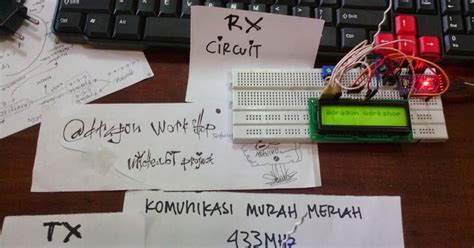 RX
CIRCUIT
@dragon workshop
@dragon workshop
project
ARDUINO
KOMUNIKASI MURAH MERIAH
TX
433MHz